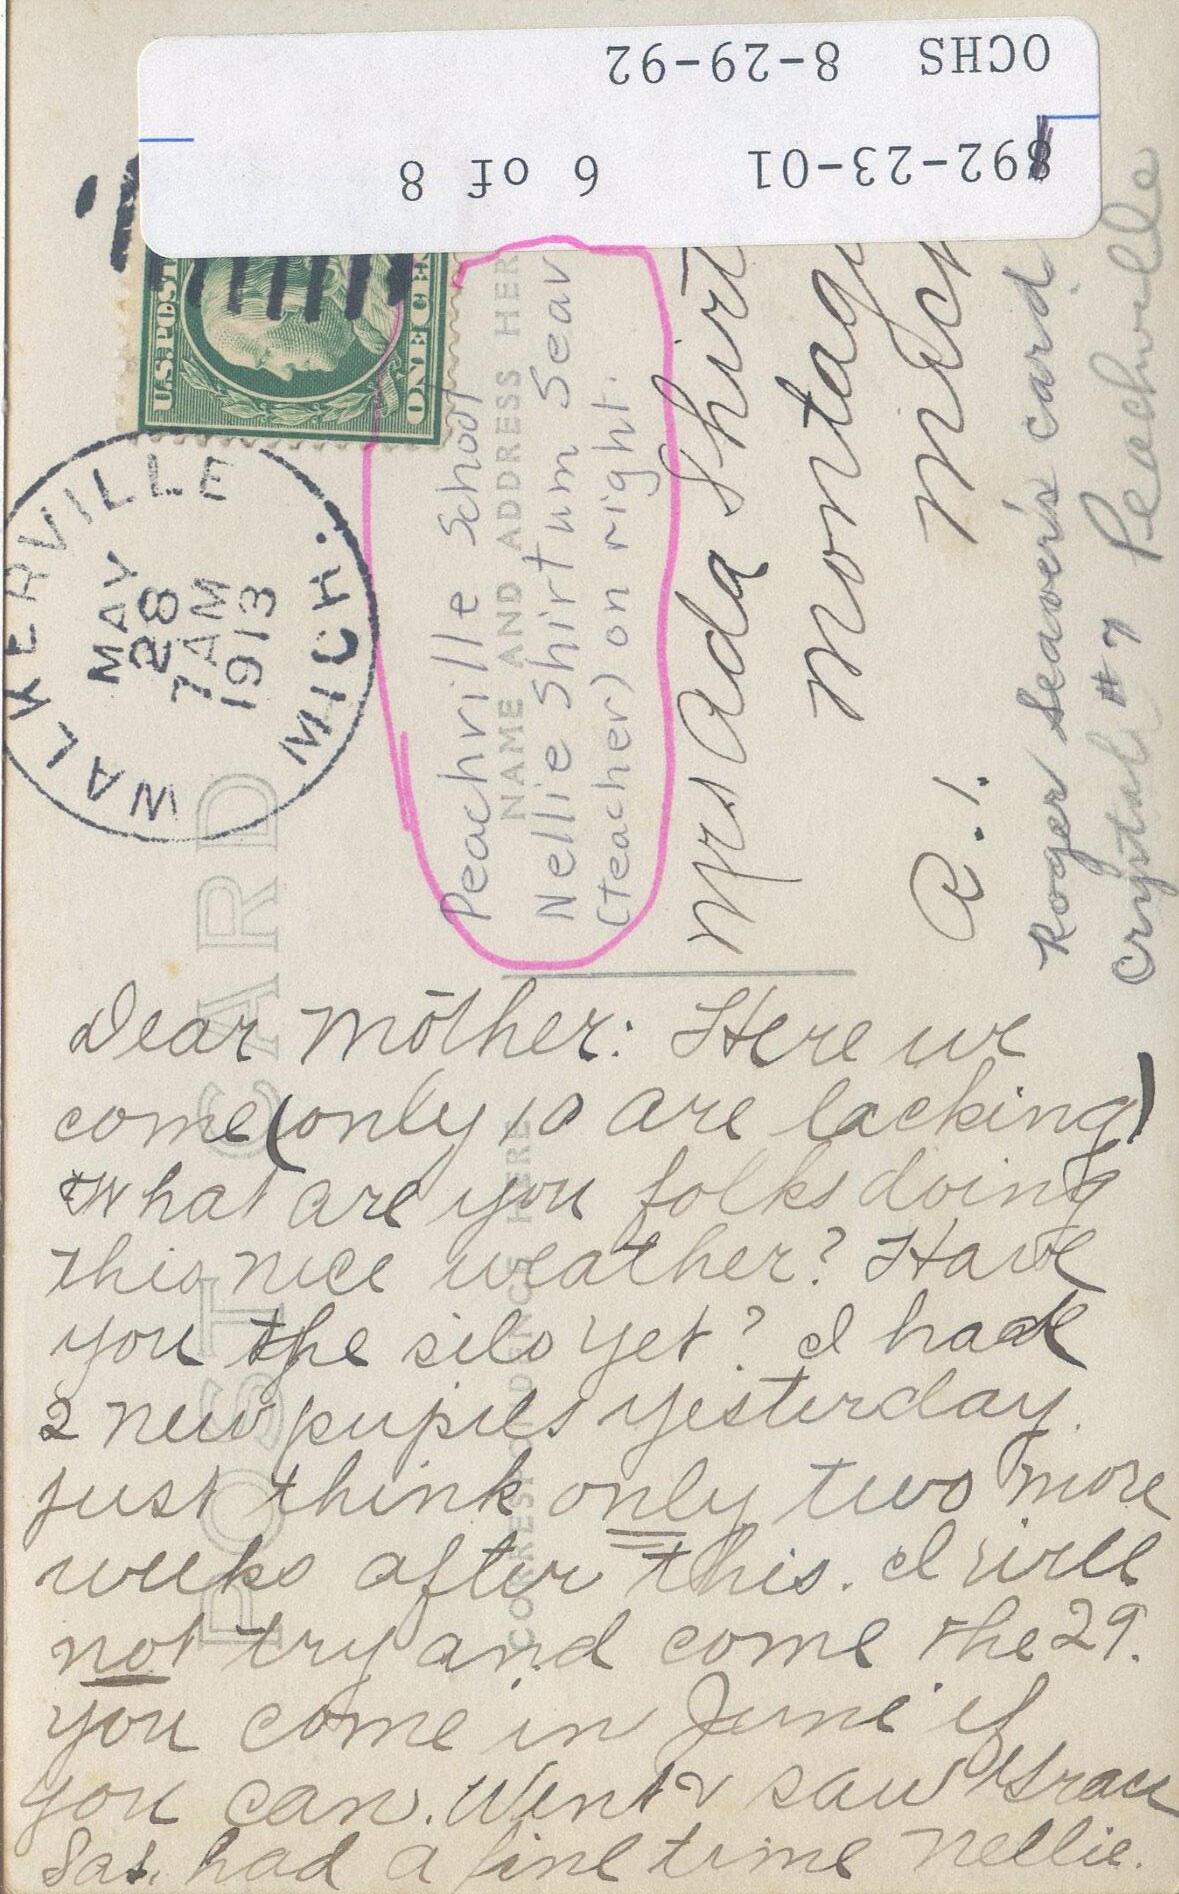 OCHS 8-29-92
92-23-01 6 of 8
U.S. POST
ONE CE
WALKERVILLE
MICH.
MAY
28
7 AM
1913
POST CARD
NAME AND ADDRESS HER
CORRESPONDENCE HERE
Peachville School
Nellie Shirtum Seav
(teacher) on right.
Mrs Ada Shirt
Montag
Mich
R.1.
Roger Seaver's card
Crystal #7 Peachville
Dear Mother: Here we
come (only 10 are lacking)
What are you folks doing
this nice weather? Have
you the silo yet? I had
2 new pupils yesterday.
Just think only two more
weeks after this. I will
not try and come the 29.
You come in June if
you can. Went & saw Grace
Sat. had a fine time Nellie.